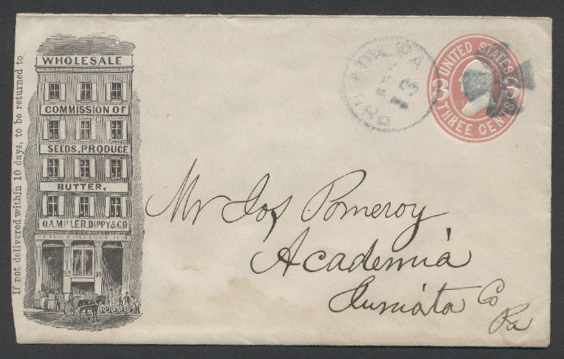 If not delivered within 10 days, to be returned to
WHOLESALE
COMMISSION OF
SEEDS, PRODUCE
BUTTER,
DIPPY & CO
PHILADA PA
13
UNITED STATES
3
THREE CENTS
Mr Jos Pomeroy
Academia
Juniata Co
Pa